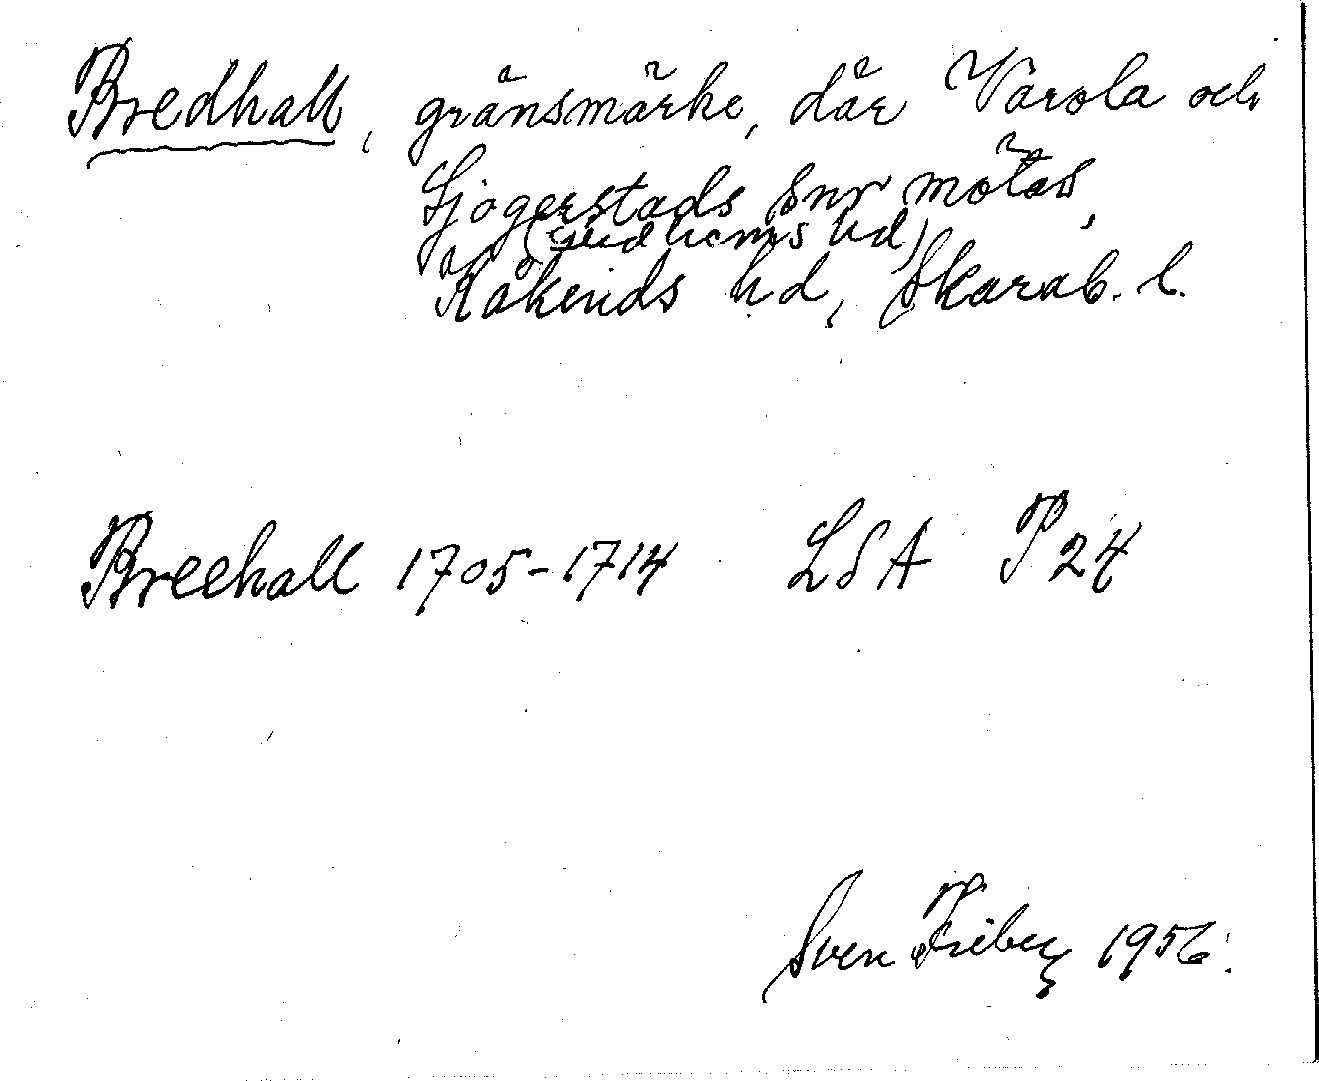 Bredhall, gränsmärke, där Varola och
Sjogerstads snr mötas,
(Gudhems hd)
Kåkinds hd, Skarab. l.
Breehall 1705-1714 LSA P24
Sven Friberg 1956.